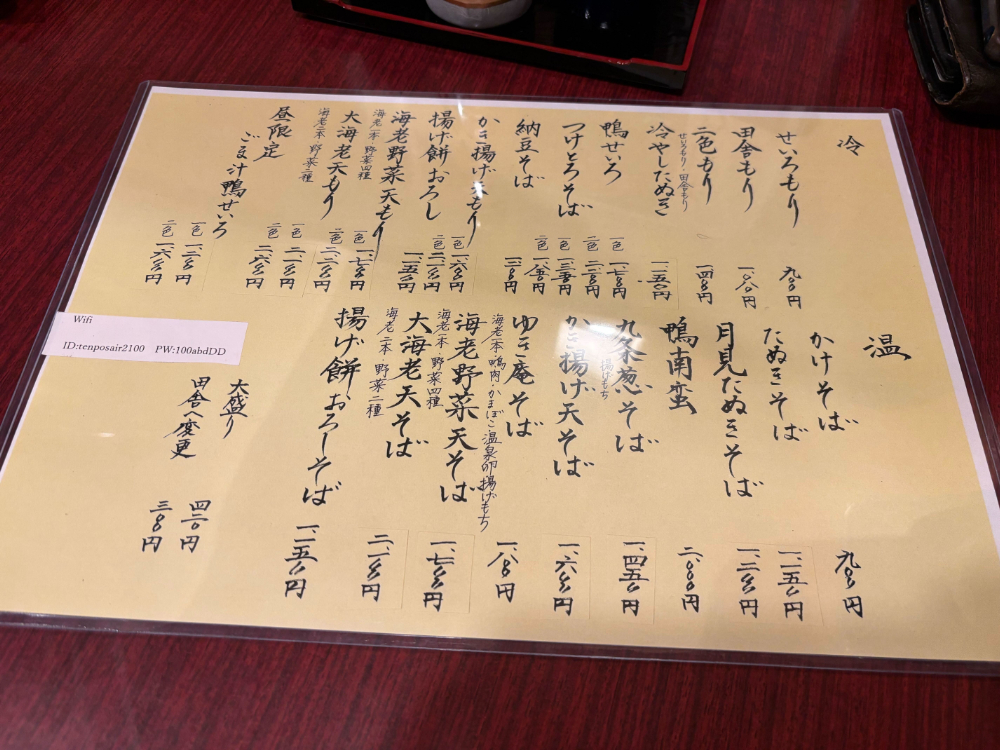 冷
せいろもり 九〇〇円
田舎もり 一、〇〇〇円
二色もり
せいろもり・田舎もり
冷やしたぬき 一、一五〇円
鴨せいろ
一色
二色
つけとろそば
一色
二色
納豆そば
かき揚げ天もり
一色
二色
揚げ餅おろし 一、一五〇円
海老野菜天もり
海老一本・野菜四種
一色
二色
大海老天もり
海老二本・野菜二種
一色
二色
昼限定
ごま汁鴨せいろ
一色
二色
温
かけそば 九〇〇円
たぬきそば 一、一五〇円
月見たぬきそば
鴨南蛮 二、〇〇〇円
九条葱そば 一、四五〇円
揚げもち
かき揚げ天そば 一、六〇〇円
ゆき庵そば
海老一本・鴨肉・かまぼこ・温泉卵・揚げもち
海老野菜天そば 一、七〇〇円
海老一本・野菜四種
大海老天そば 二、一〇〇円
海老二本・野菜二種
揚げ餅おろしそば 一、一五〇円
大盛り
田舎へ変更 三〇〇円
Wifi
ID:tenposair2100 PW:100abdDD